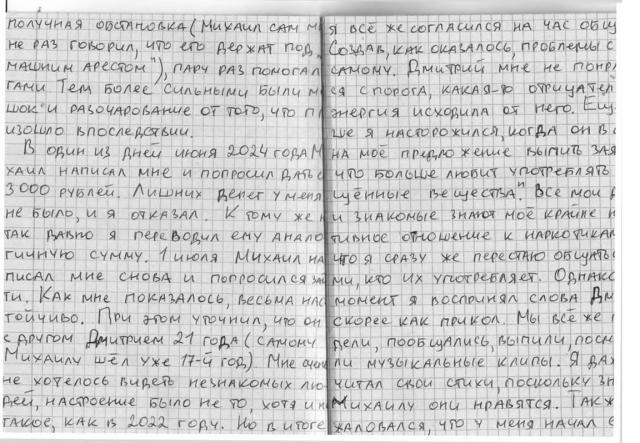 получная обстановка (Михаил сам м
не раз говорил, что его держат под "
машним арестом"), пару раз помогал
гами. Тем более сильными были м
шок и разочарование от того, что п
изошло впоследствии.
В один из дней июня 2024 года М
хаил написал мне и попросил дать е
3000 рублей. Лишних денег у меня
не было, и я отказал. К тому же н
так давно я переводил ему анало
гичную сумму. 1 июля Михаил на
писал мне снова и попросился зай
ти. Как мне показалось, весьма нас
тойчиво. При этом уточнил, что он
с другом Дмитрием 21 года (самому
Михаилу шёл уже 17-й год). Мне очень
не хотелось видеть незнакомых лю
дей, настроение было не то, хотя и не
такое, как в 2022 году. Но в итоге
я всё же согласился на час общ
Создав, как оказалось, проблемы с
самому. Дмитрий мне не понра
ся с порога, какая-то отрицател
энергия исходила от него. Ещ
ше я насторожился, когда он в о
на моё предложение выпить зая
что больше любит употреблять
щённые вещества". Все мои д
и знакомые знают моё крайне н
тивное отношение к наркотикам
что я сразу же перестаю общатьс
ми, кто их употребляет. Однако
момент я воспринял слова Дм
скорее как прикол. Мы всё же п
дели, пообщались, выпили, посм
ли музыкальные клипы. Я даж
читал свои стихи, поскольку зн
Михаилу они нравятся. Такж
жаловался, что у меня начал б